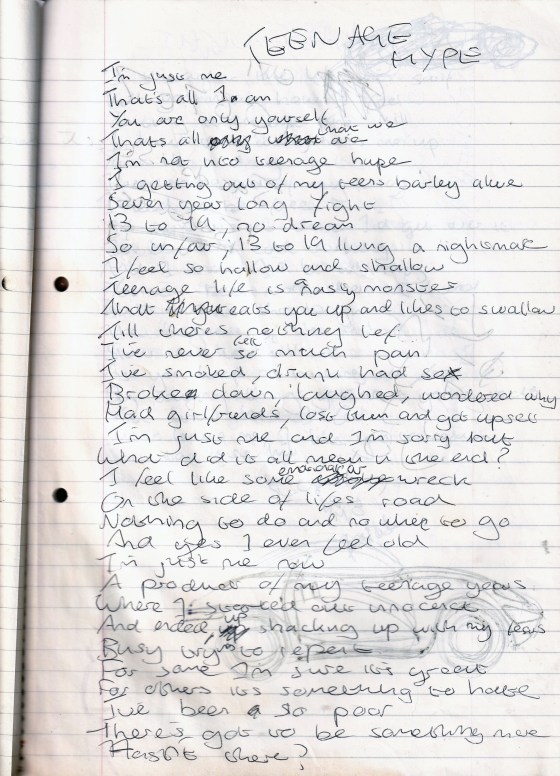 TEENAGE
HYPE
I'm just me
Thats all I am
You are only yourself
Thats all what we are
I'm not into teenage hype
I getting out of my teens barley alive
Seven year long fight
13 to 19, no dream
So unfair, 13 to 19 living a nightmare
I feel so hollow and shallow
Teenage life is a nasty monster
That eats you up and likes to swallow
Till theres nothing left
I've never felt so much pain
I've smoked, drunk had sex
Broken down, laughed, wondered why
Had girlfriends, lost them and got upset
I'm just me and I'm sorry but
What did it all mean in the end?
I feel like some emotional wreck
On the side of lifes road
Nothing to do and no where to go
And yes I even feel old
I'm just me now
A product of my teenage years
Where I started out innocent
And ended up shacking up with my fears
Busy trying to repent
For some I'm sure its great
For others its something to hate
I've been so poor
There's got to be something more
Hasn't there?